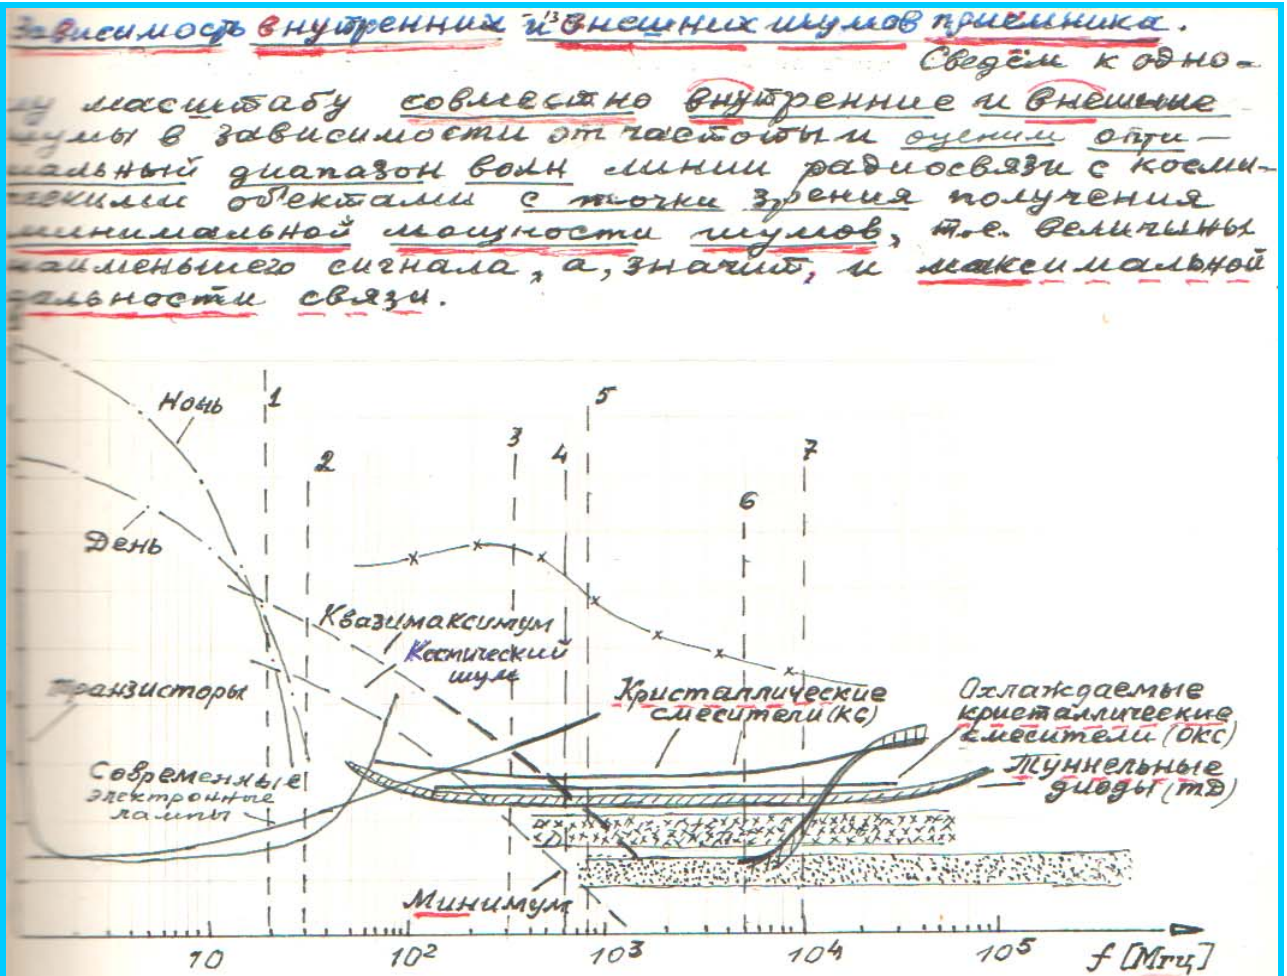 Зависимость внутренних и внешних шумов приёмника.
-13-
Сведём к одно-
му масштабу совместно внутренние и внешние
шумы в зависимости от частоты и оценим опти-
мальный диапазон волн линии радиосвязи с косми-
ческими объектами с точки зрения получения
минимальной мощности шумов, т.е. величины
наименьшего сигнала, а, значит, и максимальной
дальности связи.
Ночь
1
2
3
4
5
6
7
День
Квазимаксимум
Космический
шум
Транзисторы
Кристаллические
смесители (КС)
Охлаждаемые
кристаллические
смесители (ОКС)
Современные
электронные
лампы
Туннельные
диоды (ТД)
Минимум
10
10²
10³
10⁴
10⁵
f [Мгц]